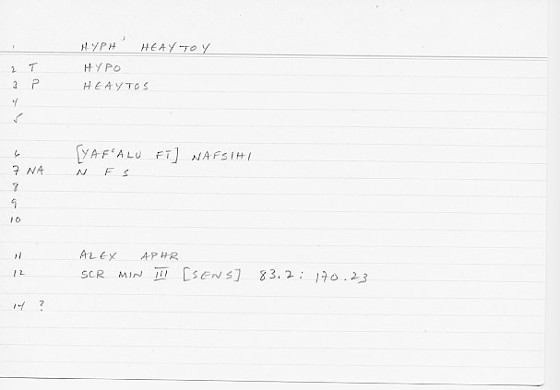 1 HYPH' HEAYTOY
2 T HYPO
3 P HEAYTOS
4
5
6 [YAF'ALU FI] NAFSIHI
7 NA N F S
8
9
10
11 ALEX APHR
12 SCR MIN III [SENS] 83.2: 170.23
14 ?